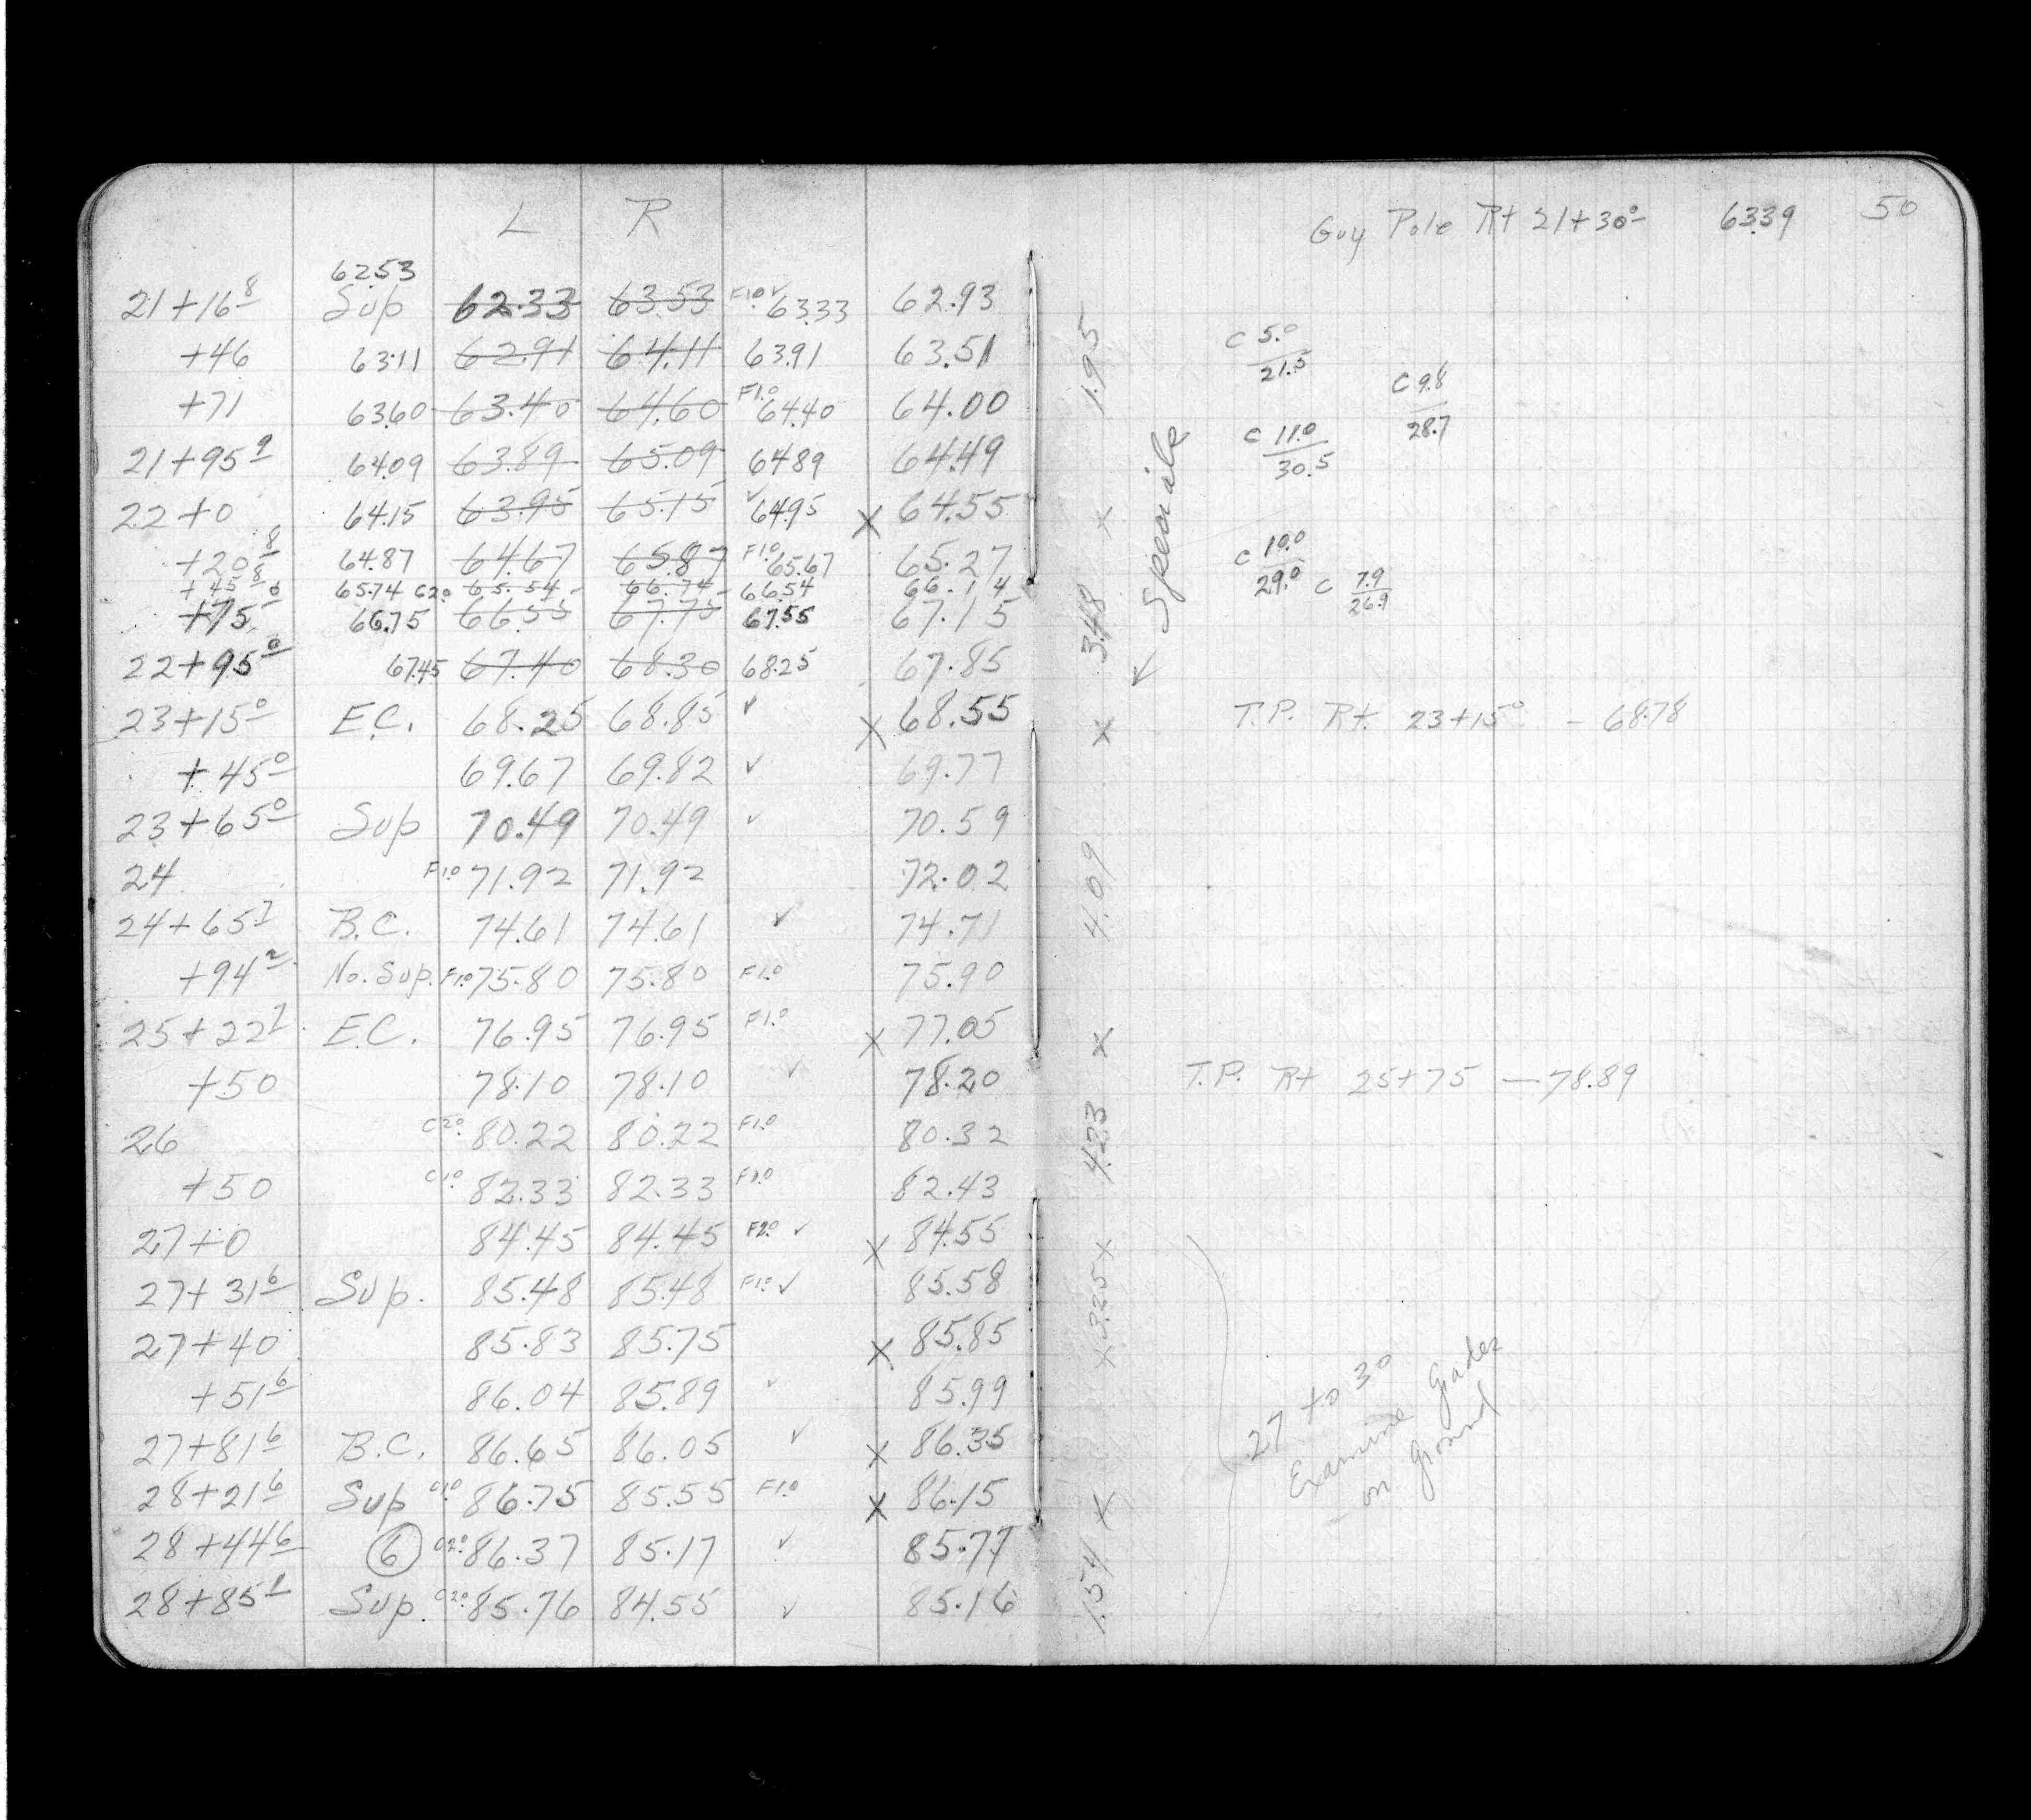 L R
6253
21+16⁸ Sup 62.33 63.53 F1.0 ✓ 63.33 62.93
+46 63.11 62.91 64.11 63.91 63.51
+71 63.60 63.40 64.60 F1.0 64.40 64.00
21+95⁹ 64.09 63.89 65.09 64.89 64.49
22+0 64.15 63.95 65.15 ✓ 64.95 X 64.55
+20⁸ 64.87 64.67 65.87 F1.0 65.67 65.27
+45⁸ 65.74 C2.0 65.54 66.74 66.54 66.14
+75⁰ 66.75 66.55 67.75 67.55 67.15
22+95⁰ 67.45 67.40 68.30 68.25 67.85
23+15⁰ E.C. 68.25 68.85 ✓ X 68.55
+45⁰ 69.67 69.82 ✓ 69.77
23+65⁰ Sup 70.49 70.49 ✓ 70.59
24 F1.0 71.92 71.92 72.02
24+65⁷ B.C. 74.61 74.61 ✓ 74.71
+94² No. Sup. F1.0 75.80 75.80 F1.0 75.90
25+22⁷ E.C. 76.95 76.95 F1.0 X 77.05
+50 78.10 78.10 ✓ 78.20
26 C2.0 80.22 80.22 F1.0 80.32
+50 C1.0 82.33 82.33 F1.0 82.43
27+0 84.45 84.45 F2.0 ✓ X 84.55
27+31⁶ Sup. 85.48 85.48 F1.0 ✓ 85.58
27+40 85.83 85.75 X 85.85
+51⁶ 86.04 85.89 ✓ 85.99
27+81⁶ B.C. 86.65 86.05 ✓ X 86.35
28+21⁶ Sup C1.0 86.75 85.55 F1.0 X 86.15
28+44⁶ 6 C2.0 86.37 85.17 ✓ 85.77
28+85¹ Sup. C2.0 85.76 84.55 ✓ 85.16
1.54 X X 3.25 X 4.23 X 4.09 X 3.48 X 1.95
Guy Pole Rt 21+30⁰ 63.39 50
← Specials
C 5.0
21.5
C 9.8
28.7
C 11.0
30.5
C 10.0
29.0
C 7.9
26.9
T.P. Rt. 23+15⁰ - 68.78
T.P. Rt 25+75 — 78.89
27 to 30
Examine Grades
on Ground